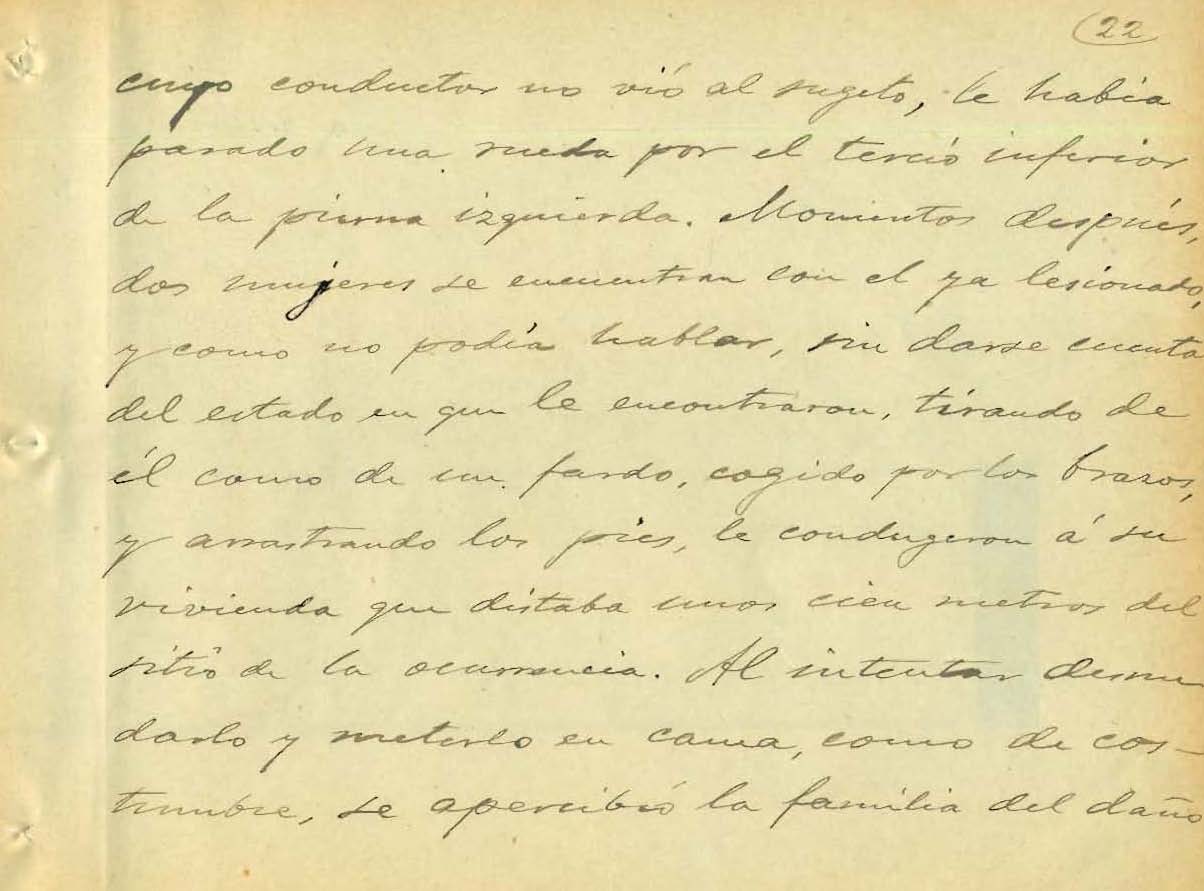 22
cuyo conductor no vió al sugeto, le habia
pasado una rueda por el tercio inferior
de la pierna izquierda. Momentos después,
dos mujeres se encuentran con el ya lesionado,
y como no podía hablar, sin darse cuenta
del estado en que le encontraron, tirando de
él como de un fardo, cogido por los brazos,
y arrastrando los pies, le condugeron á su
vivienda que distaba unos cien metros del
sitio de la ocurrencia. Al intentar desnu
darlo y meterlo en cama, como de cos-
tumbre, se apercibió la familia del daño